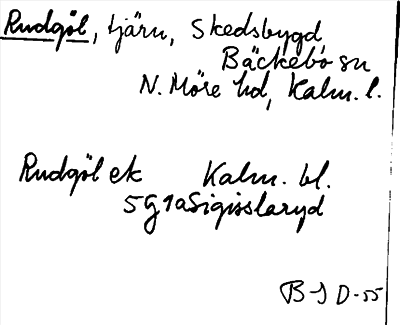 Rudgöl, tjärn, Skedsbygd
Bäckebo sn
N. Möre hd, Kalm. l.
Rudgöl ek Kalm. bl.
5G1a Sigisslaryd
B-J D-55